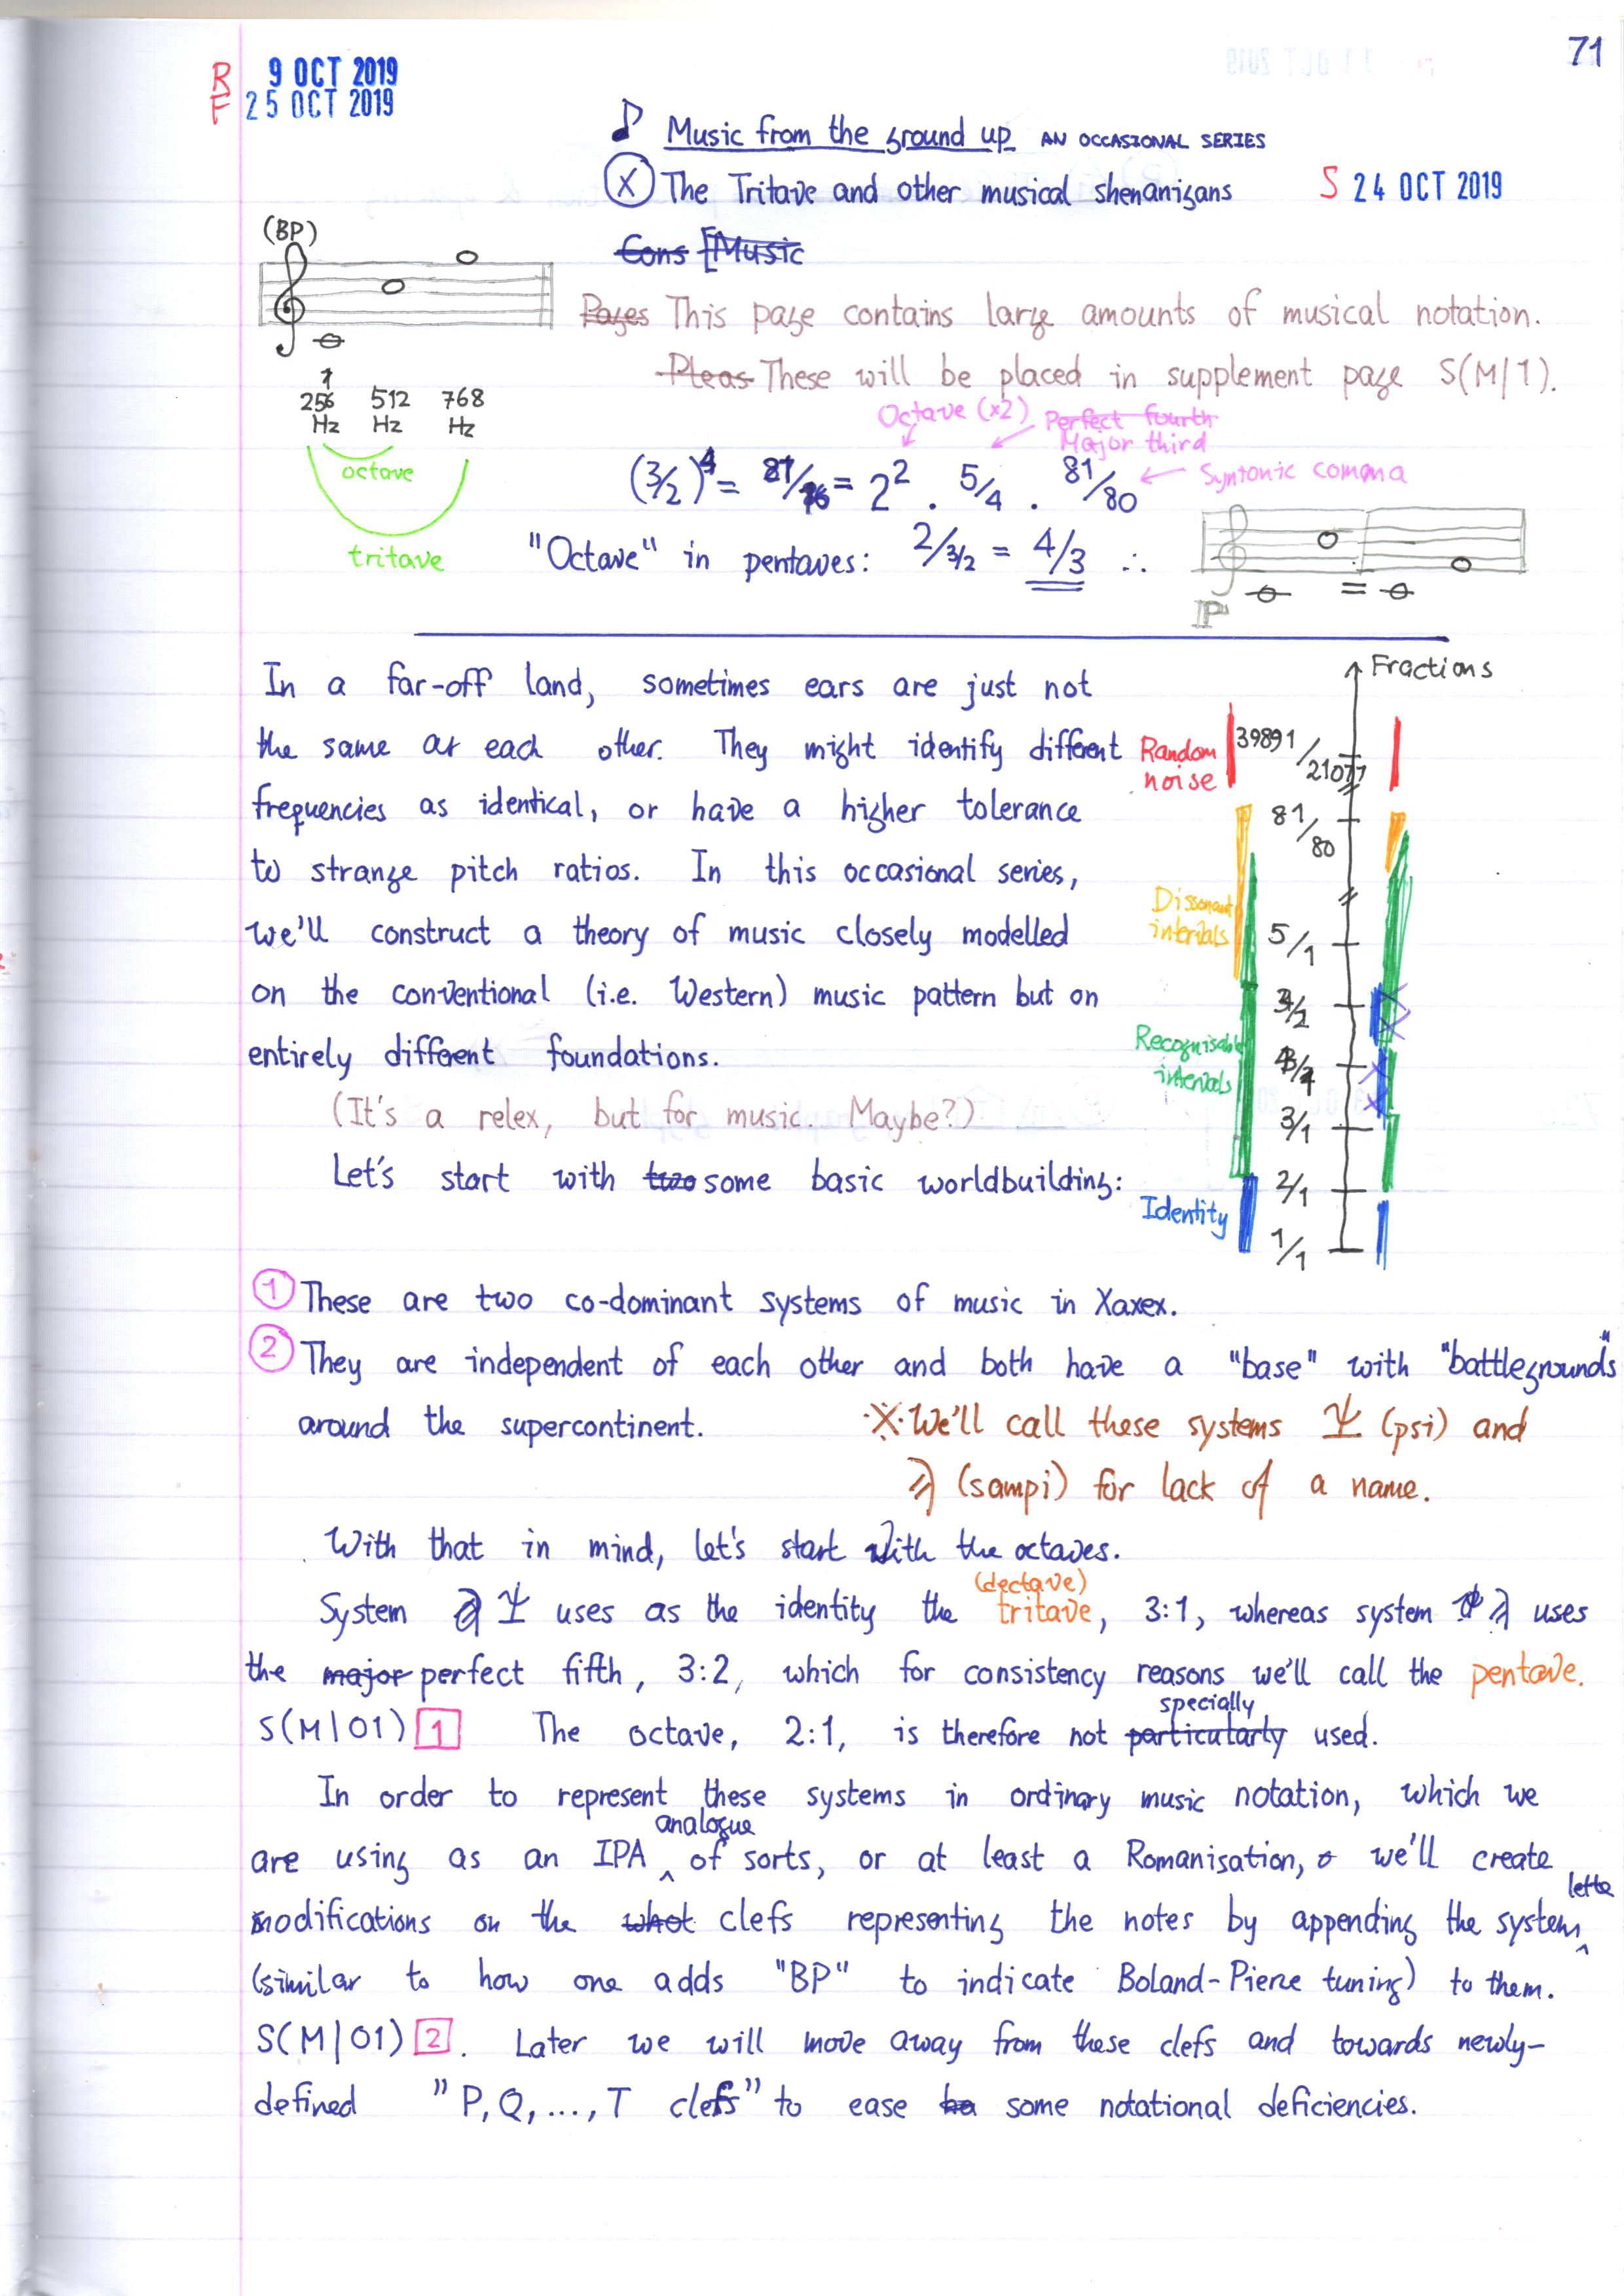 71
R 9 OCT 2019
F 25 OCT 2019
Music from the ground up AN OCCASIONAL SERIES
X The Tritave and other musical shenanigans
S 24 OCT 2019
Cons [Music
(BP)
Pages This page contains large amounts of musical notation.
Pleas These will be placed in supplement page S(M/1).
256 Hz 512 Hz 768 Hz
octave
tritave
Octave (x2) Perfect fourth
Major third
Syntonic comma
(3/2)^4 = 81/16 = 2^2 . 5/4 . 81/80
"Octave" in pentaves: 2/3/2 = 4/3 ∴
=
P
In a far-off land, sometimes ears are just not
the same as each other. They might identify different
frequencies as identical, or have a higher tolerance
to strange pitch ratios. In this occasional series,
we'll construct a theory of music closely modelled
on the conventional (i.e. Western) music pattern but on
entirely different foundations.
(It's a relex, but for music. Maybe?)
Let's start with two some basic worldbuilding:
Fractions
Random noise
39891/21077
81/80
Dissonant intervals
5/1
3/2
Recognisable intervals
3/1
2/1
Identity
1/1
1 These are two co-dominant systems of music in Xaxex.
2 They are independent of each other and both have a "base" with "battlegrounds"
around the supercontinent.
※ We'll call these systems Ψ (psi) and
ϡ (sampi) for lack of a name.
With that in mind, let's start with the octaves.
(dectave)
System Ψ uses as the identity the tritave, 3:1, whereas system ϡ uses
the major perfect fifth, 3:2, which for consistency reasons we'll call the pentave.
specially
S(M/01) 1 The octave, 2:1, is therefore not particularly used.
In order to represent these systems in ordinary music notation, which we
analogue
are using as an IPA ^ of sorts, or at least a Romanisation, we'll create
lette
modifications on the what clefs representing the notes by appending the system ^
(similar to how one adds "BP" to indicate Boland-Pierze tuning) to them.
S(M/01) 2. Later we will move away from these clefs and towards newly-
defined "P, Q, ..., T clefs" to ease ba some notational deficiencies.